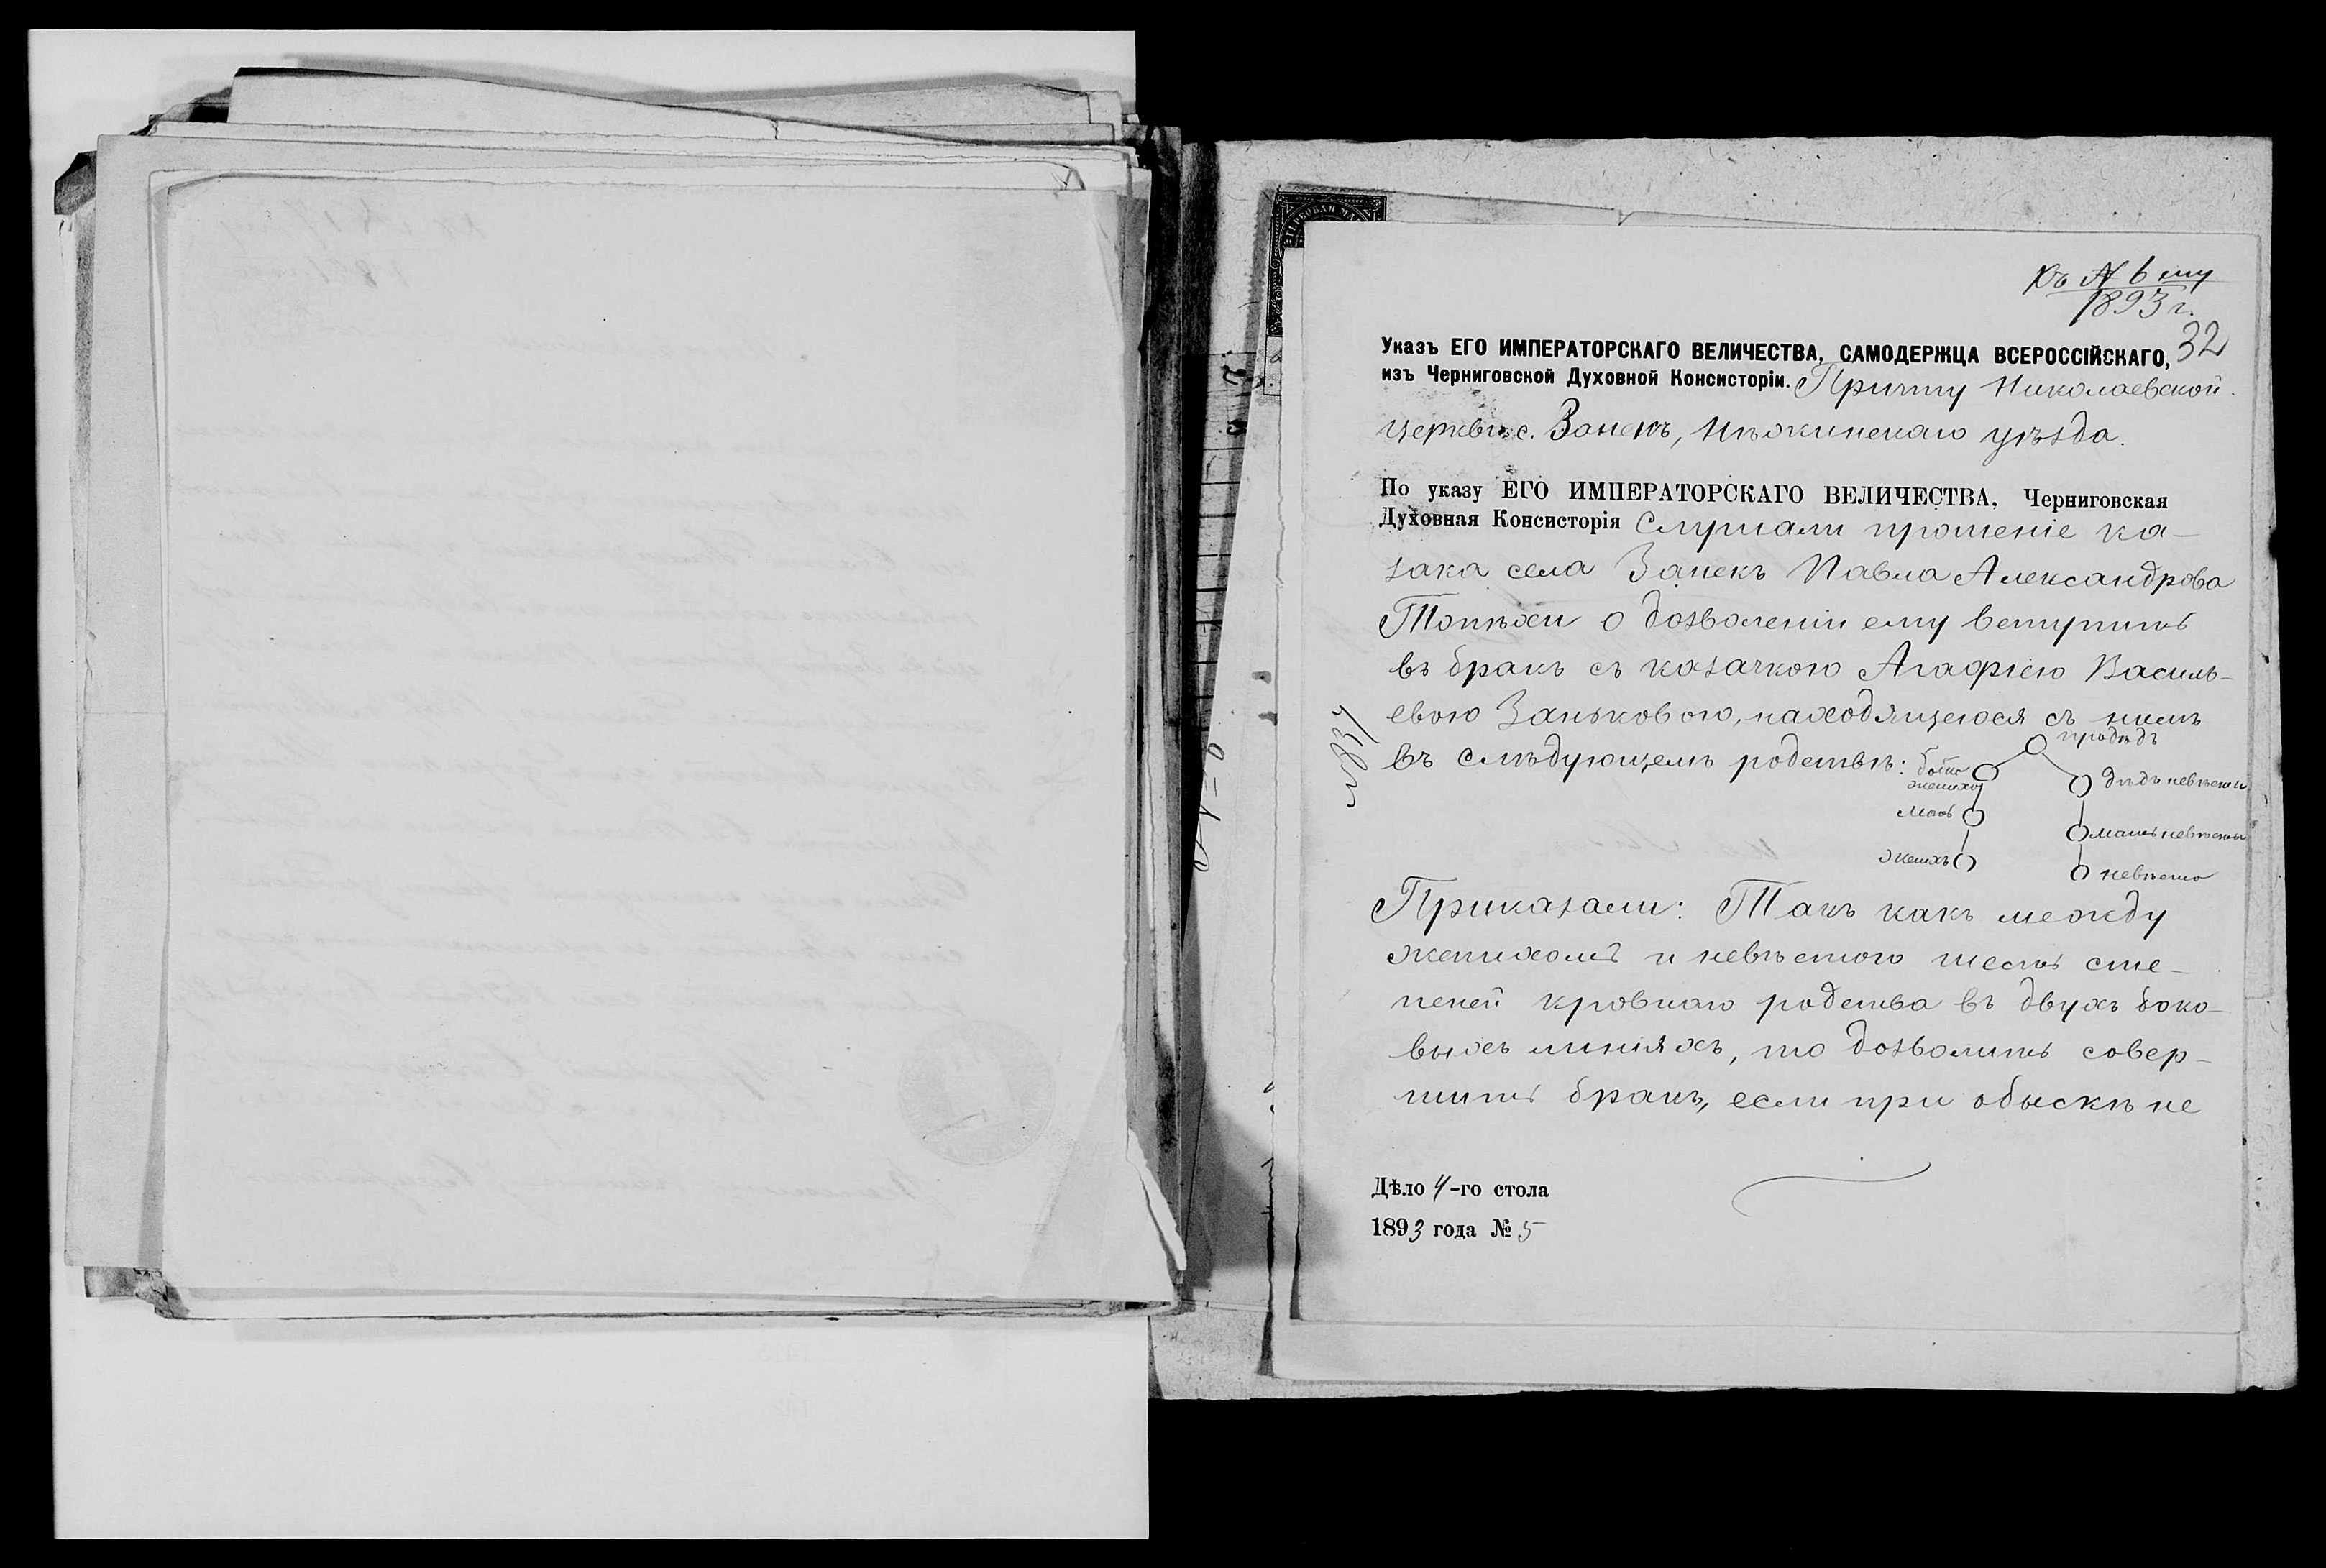 Къ № 6 му
1893 г.
32
Указъ ЕГО ИМПЕРАТОРСКАГО ВЕЛИЧЕСТВА, САМОДЕРЖЦА ВСЕРОССІЙСКАГО,
изъ Черниговской Духовной Консисторіи. Причту Николаевской
церкви с. Занекъ, Нѣжинскаго уѣзда.
По указу ЕГО ИМПЕРАТОРСКАГО ВЕЛИЧЕСТВА, Черниговская
Духовная Консисторія Слушали прошеніе ка-
зака села Занекъ Павла Александрова
Топѣхи о дозволеніи ему вступить
въ бракъ съ казачкою Агафіею Василь-
евою Заньковою, находящеюся съ нимъ
въ слѣдующемъ родствѣ:
прадѣдъ
жениха
дѣдъ невѣсты
мать невѣсты
женихъ
невѣста
Приказали: Такъ какъ между
женихомъ и невѣстою шесть сте-
пеней кровнаго родства въ двухъ боко-
выхъ линіяхъ, то дозволить совер-
шить бракъ, если при обыскѣ не
Дѣло 4-го стола
1893 года № 5